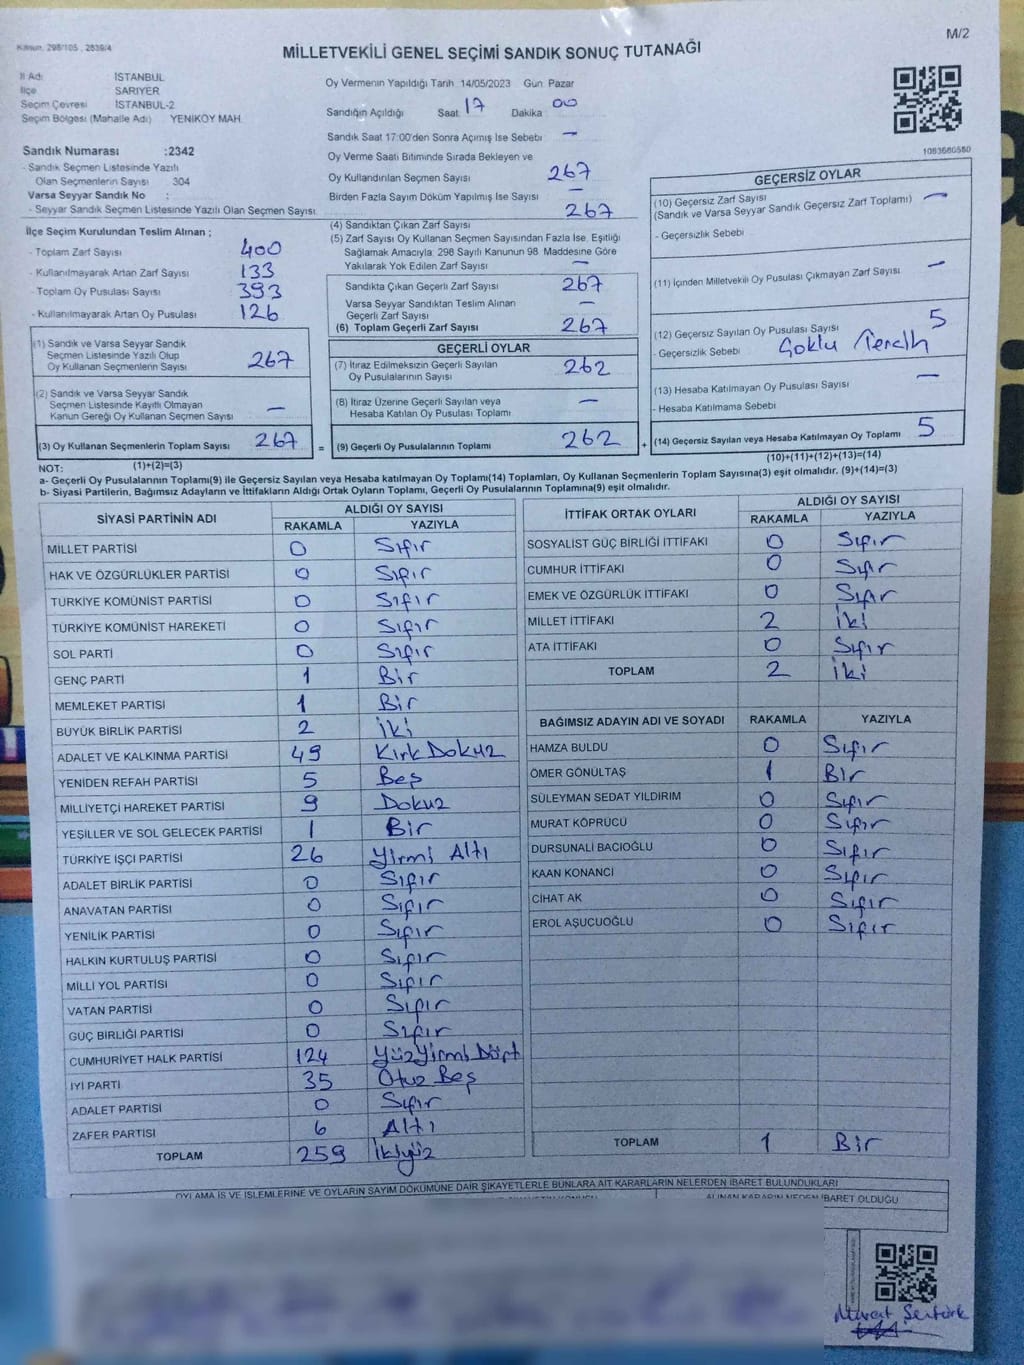 Kanun, 298/105, 2839/4
M/2
MİLLETVEKİLİ GENEL SEÇİMİ SANDIK SONUÇ TUTANAĞI
İl Adı İSTANBUL
İlçe SARIYER
Seçim Çevresi İSTANBUL-2
Seçim Bölgesi (Mahalle Adı) YENİKÖY MAH.
Sandık Numarası :2342
- Sandık Seçmen Listesinde Yazılı
Olan Seçmenlerin Sayısı 304
Varsa Seyyar Sandık No :
- Seyyar Sandık Seçmen Listesinde Yazılı Olan Seçmen Sayısı
İlçe Seçim Kurulundan Teslim Alınan ;
- Toplam Zarf Sayısı 400
- Kullanılmayarak Artan Zarf Sayısı 133
- Toplam Oy Pusulası Sayısı 393
- Kullanılmayarak Artan Oy Pusulası 126
(1) Sandık ve Varsa Seyyar Sandık
Seçmen Listesinde Yazılı Olup
Oy Kullanan Seçmenlerin Sayısı 267
(2) Sandık ve Varsa Seyyar Sandık
Seçmen Listesinde Kayıtlı Olmayan
Kanun Gereği Oy Kullanan Seçmen Sayısı —
(3) Oy Kullanan Seçmenlerin Toplam Sayısı 267 =
Oy Vermenin Yapıldığı Tarih 14/05/2023 Gün: Pazar
Sandığın Açıldığı Saat 17 Dakika 00
Sandık Saat 17:00'den Sonra Açımış İse Sebebi —
Oy Verme Saati Bitiminde Sırada Bekleyen ve
Oy Kullandırılan Seçmen Sayısı 267
Birden Fazla Sayım Döküm Yapılmış İse Sayısı —
(4) Sandıktan Çıkan Zarf Sayısı 267
(5) Zarf Sayısı Oy Kullanan Seçmen Sayısından Fazla İse, Eşitliği
Sağlamak Amacıyla 298 Sayılı Kanunun 98. Maddesine Göre
Yakılarak Yok Edilen Zarf Sayısı —
Sandıkta Çıkan Geçerli Zarf Sayısı 267
Varsa Seyyar Sandıktan Teslim Alınan
Geçerli Zarf Sayısı —
(6) Toplam Geçerli Zarf Sayısı 267
GEÇERLİ OYLAR
(7) İtiraz Edilmeksizin Geçerli Sayılan
Oy Pusulalarının Sayısı 262
(8) İtiraz Üzerine Geçerli Sayılan veya
Hesaba Katılan Oy Pusulası Toplamı —
(9) Geçerli Oy Pusulalarının Toplamı 262 +
1083680580
GEÇERSİZ OYLAR
(10) Geçersiz Zarf Sayısı —
(Sandık ve Varsa Seyyar Sandık Geçersiz Zarf Toplamı)
- Geçersizlik Sebebi
(11) İçinden Milletvekili Oy Pusulası Çıkmayan Zarf Sayısı —
(12) Geçersiz Sayılan Oy Pusulası Sayısı 5
- Geçersizlik Sebebi Çoklu Tercih
(13) Hesaba Katılmayan Oy Pusulası Sayısı —
- Hesaba Katılmama Sebebi
(14) Geçersiz Sayılan veya Hesaba Katılmayan Oy Toplamı 5
NOT: (1)+(2)=(3) (10)+(11)+(12)+(13)=(14)
a- Geçerli Oy Pusulalarının Toplamı(9) ile Geçersiz Sayılan veya Hesaba katılmayan Oy Toplamı(14) Toplamları, Oy Kullanan Seçmenlerin Toplam Sayısına(3) eşit olmalıdır. (9)+(14)=(3)
b- Siyasi Partilerin, Bağımsız Adayların ve İttifakların Aldığı Ortak Oyların Toplamı, Geçerli Oy Pusulalarının Toplamına(9) eşit olmalıdır.
SİYASİ PARTİNİN ADI ALDIĞI OY SAYISI
RAKAMLA YAZIYLA
MİLLET PARTİSİ 0 Sıfır
HAK VE ÖZGÜRLÜKLER PARTİSİ 0 Sıfır
TÜRKİYE KOMÜNİST PARTİSİ 0 Sıfır
TÜRKİYE KOMÜNİST HAREKETİ 0 Sıfır
SOL PARTİ 0 Sıfır
GENÇ PARTİ 1 Bir
MEMLEKET PARTİSİ 1 Bir
BÜYÜK BİRLİK PARTİSİ 2 İki
ADALET VE KALKINMA PARTİSİ 49 Kırk Dokuz
YENİDEN REFAH PARTİSİ 5 Beş
MİLLİYETÇİ HAREKET PARTİSİ 9 Dokuz
YEŞİLLER VE SOL GELECEK PARTİSİ 1 Bir
TÜRKİYE İŞÇİ PARTİSİ 26 Yirmi Altı
ADALET BİRLİK PARTİSİ 0 Sıfır
ANAVATAN PARTİSİ 0 Sıfır
YENİLİK PARTİSİ 0 Sıfır
HALKIN KURTULUŞ PARTİSİ 0 Sıfır
MİLLİ YOL PARTİSİ 0 Sıfır
VATAN PARTİSİ 0 Sıfır
GÜÇ BİRLİĞİ PARTİSİ 0 Sıfır
CUMHURİYET HALK PARTİSİ 124 Yüz Yirmi Dört
İYİ PARTİ 35 Otuz Beş
ADALET PARTİSİ 0 Sıfır
ZAFER PARTİSİ 6 Altı
TOPLAM 259 İkiyüz
İTTİFAK ORTAK OYLARI ALDIĞI OY SAYISI
RAKAMLA YAZIYLA
SOSYALİST GÜÇ BİRLİĞİ İTTİFAKI 0 Sıfır
CUMHUR İTTİFAKI 0 Sıfır
EMEK VE ÖZGÜRLÜK İTTİFAKI 0 Sıfır
MİLLET İTTİFAKI 2 İki
ATA İTTİFAKI 0 Sıfır
TOPLAM 2 İki
BAĞIMSIZ ADAYIN ADI VE SOYADI RAKAMLA YAZIYLA
HAMZA BULDU 0 Sıfır
ÖMER GÖNÜLTAŞ 1 Bir
SÜLEYMAN SEDAT YILDIRIM 0 Sıfır
MURAT KÖPRÜCÜ 0 Sıfır
DURSUNALİ BACIOĞLU 0 Sıfır
KAAN KONANCI 0 Sıfır
CİHAT AK 0 Sıfır
EROL AŞUCUOĞLU 0 Sıfır
TOPLAM 1 Bir
OYLAMA İŞ VE İŞLEMLERİNE VE OYLARIN SAYIM DÖKÜMÜNE DAİR ŞİKAYETLERLE BUNLARA AİT KARARLARIN NELERDEN İBARET BULUNDUKLARI
ALINAN KARARIN NEDEN İBARET OLDUĞU
Murat Şentürk